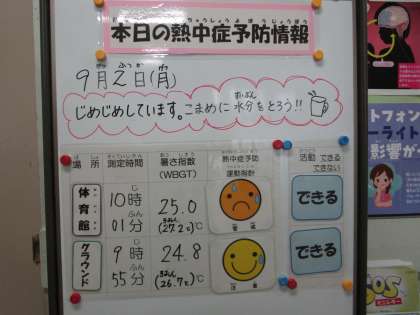 本日の熱中症予防情報
9月2日(月)
じめじめしています。こまめに水分をとろう!!
場所 測定時間 暑さ指数(WBGT) 熱中症予防運動指数 活動 できる できない
体育館 10時01分 25.0 (27.2)℃ 警戒 できる
グラウンド 9時55分 24.8 (26.7)℃ 注意 できる
トフォン
ーライト
影響が
SOS